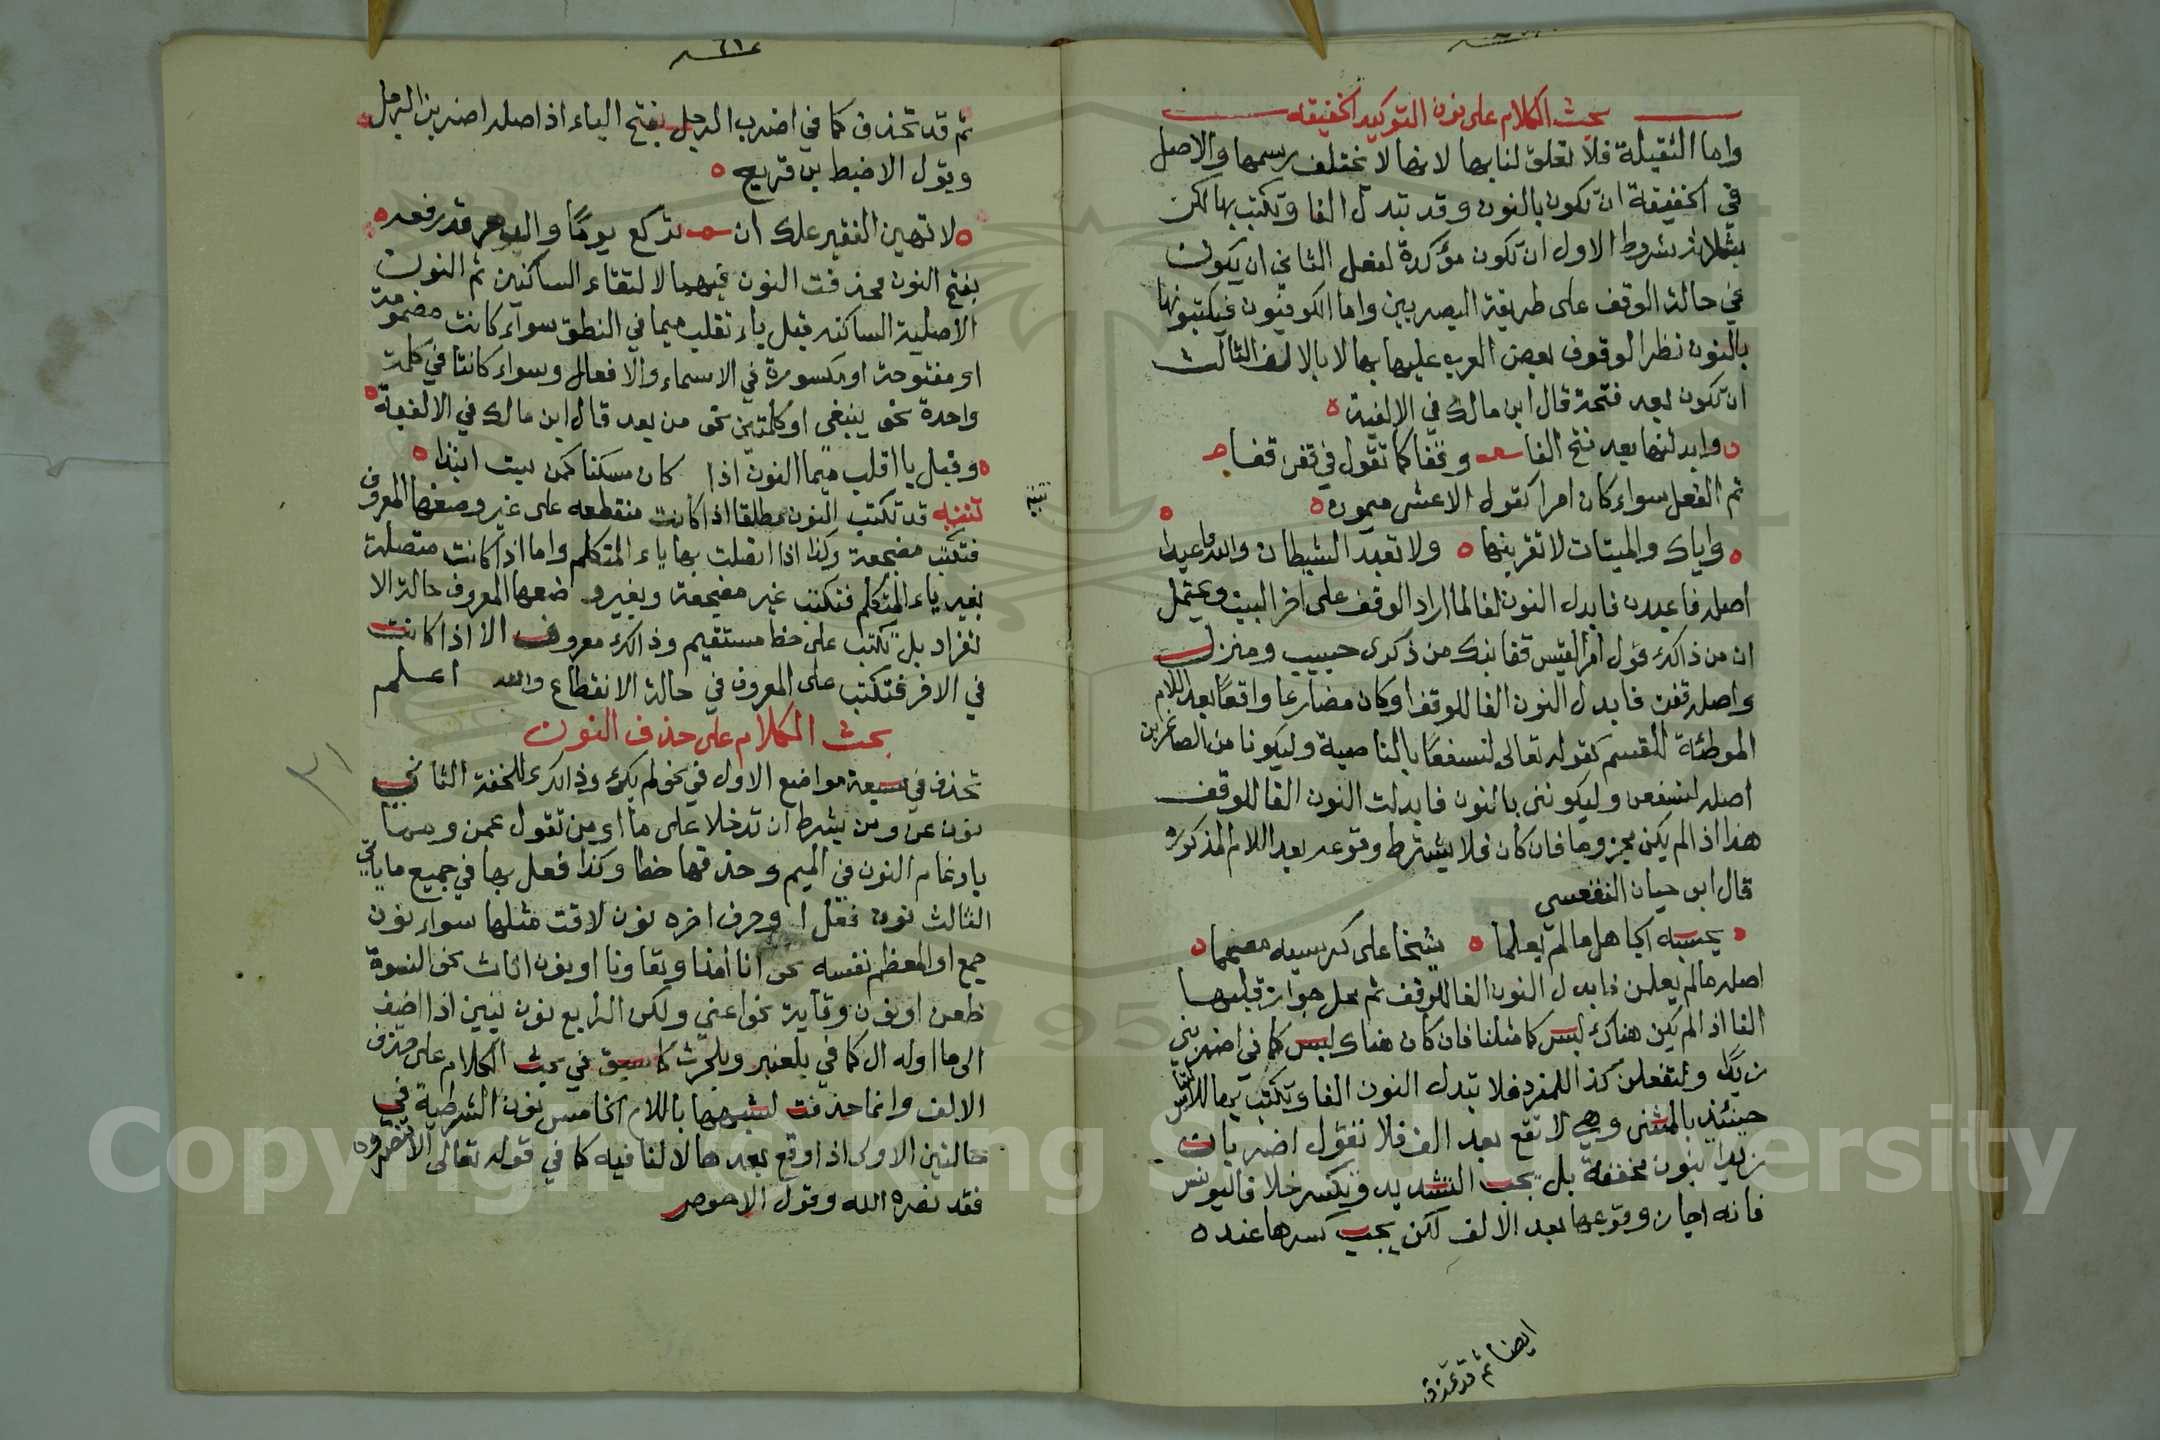 بحث الكلام على نون التوكيد الخفيفه
واما الثقيلة فلا تعلق لنا بها لانها لا تختلف رسمها والاصل
في الخفيفة ان تكون بالنون وقد تبدل الفا وتكتب بها لكن
بثلاثة شروط الاول ان تكون مؤكدة لفعل الثاني ان يكون
في حالة الوقف على طريقة البصريين واما الكوفيون فيكتبونها
بالنون نظرا لوقوف بعض العرب عليها بها لا بالالف الثالث
ان تكون بعد فتحة قال ابن مالك في الالفية
وابدلنها بعد فتح الفا وقفا كما تقول في قفن قفا
ثم الفعل سواء كان امرا كقول الاعشى ميمون
واياك والميتات لا تقربنها ولا تعبد الشيطان والله فاعبدا
اصله فاعبدن فابدل النون الفا لما اراد الوقف على اخر البيت ويحتمل
ان من ذلك قول امرالقيس قفا نبك من ذكرى حبيب ومنزل
واصله قفن فابدل النون الفا للوقف او كان مضارعا واقعا بعد اللام
الموطئة للقسم كقوله تعالى لنسفعا بالناصية وليكونا من الصاغرين
اصله لنسفعن وليكونن بالنون فابدلت النون الفا للوقف
هذا اذا لم يكن مجزوما فان كان فلا يشترط وقوعه بعد اللام المذكورة
قال ابو حيان الفقعسي
يحسبه الجاهل ما لم يعلما شيخا على كرسيه معمما
اصله ما لم يعلمن فابدل النون الفا للوقف ثم محل جواز قلبها
الفا اذا لم يكن هناك لبس كما مثلنا فان كان هناك لبس كما في اضربن
زيدا ولتفعلن كذا للمفرد فلا تبدل النون الفا وتكتب بها للالتباس
حينئذ بالمثنى وهي لا تقع بعد الف فلا تقول اضربان
زيدا بنون مخففة بل يجب التشديد وتكسر خلافا ليونس
فانه اجاز وقوعها بعد الالف لكن يجب كسرها عنده
ايضا ثم قد تحذف
ثم قد تحذف كما في اضرب الرجل بفتح الباء اذ اصله اضربن الرجل
وقول الاضبط بن قريع
لا تهين الفقير علك ان تركع يوما والدهر قد رفعه
بفتح النون فحذفت النون فيهما لالتقاء الساكنين ثم النون
الاصلية الساكنه قبل باء تقلب ميما في النطق سواء كانت مضمومة
او مفتوحة او مكسورة في الاسماء والافعال وسواء كانتا في كلمة
واحدة نحو ينبغي او كلمتين نحو من بعد قال ابن مالك في الالفية
وقبل با اقلب ميما النون اذا كان مسكنا كمن بت انبذا
تنبيه
تنبيه قد تكتب النون مطلقا اذا كانت منقطعه على غير وضعها المعروف
فتكتب مضجعة وكذا اذا اتصلت بها ياء المتكلم واما اذا كانت متصلة
بغير ياء المتكلم فتكتب غير مضجعة وبغير وضعها المعروف حالة الا
نفراد بل تكتب على خط مستقيم وذلك معروف الا اذا كانت
في الاخر فتكتب على المعروف في حالة الانقطاع والله اعلم
بحث الكلام على حذف النون
تحذف في سبعة مواضع الاول في نحو لم يك وذلك للخفة الثاني
نون عن ومن بشرط ان تدخلا على ما او من تقول عمن ومما
بادغام النون في الميم وحذفها خطا وكذا فعل بها في جميع ما ياتي
الثالث نون فعل او حرف اخره نون لاقت مثلها سواء نون
جمع او المعظم نفسه نحو انا امنا وتعاونا او نون اناث نحو النسوة
طعن او نون وقاية نحو اعني ولكن الرابع نون بنين اذا اضف
الى ما اوله ال كما في بلعنبر وبلحرث كما سبق في بحث الكلام على حذف
الالف وانما حذفت لشبهها باللام الخامس نون الشرطية في
حالتين الاولى اذا وقع بعدها لا لنافيه كما في قوله تعالى الا تنصروه
فقد نصره الله وقول الاحوص